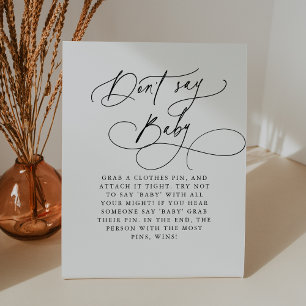 Don't say
Baby
GRAB A CLOTHES PIN, AND
ATTACH IT TIGHT. TRY NOT
TO SAY 'BABY' WITH ALL
YOUR MIGHT! IF YOU HEAR
SOMEONE SAY 'BABY' GRAB
THEIR PIN. IN THE END, THE
PERSON WITH THE MOST
PINS, WINS!